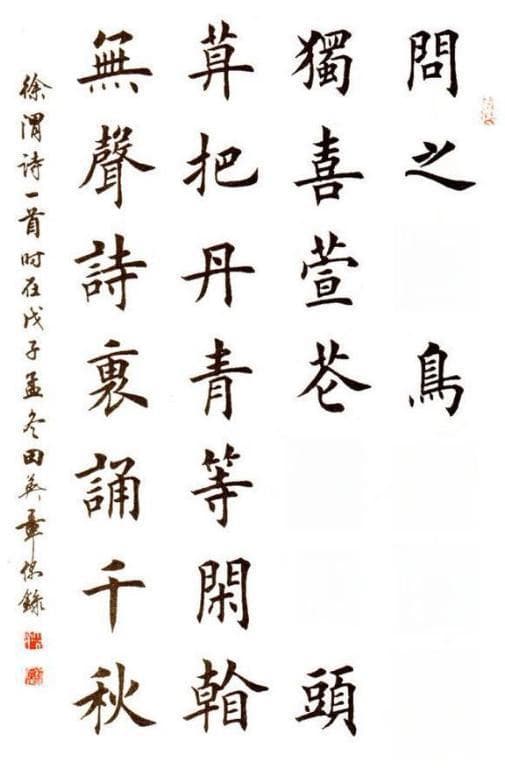 問之鳥
獨喜萱花頭
莫把丹青等閑看
無聲詩裏誦千秋
徐渭詩一首时在戊子孟冬田英章錄